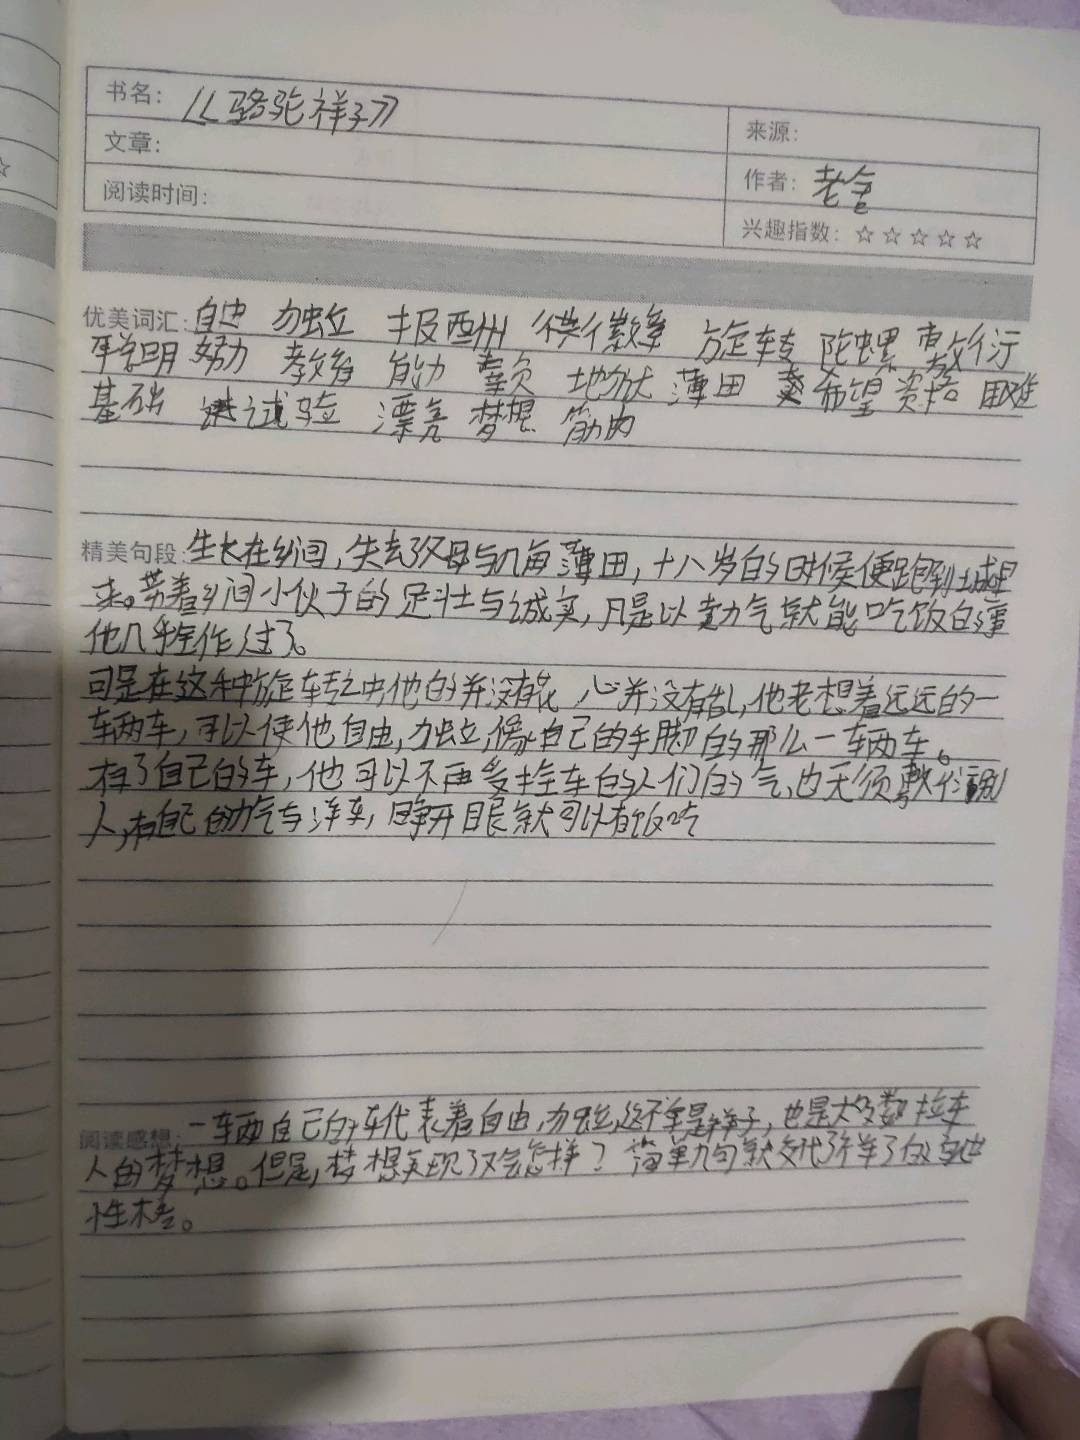 书名：《骆驼祥子》
来源：
文章：
作者：老舍
阅读时间：
兴趣指数：☆☆☆☆☆
优美词汇：自由 独立 报酬 旋转 陀螺 敷衍
聪明 努力 教爷 能力 车夫 地狱 薄田 希望 资格 困难
基础 试验 漂亮 梦想 筋肉
精美句段：生长在乡间，失去了父母与几亩薄田，十八岁的时候便跑到城里
来。带着乡间小伙子的足壮与诚实，凡是以卖力气就能吃饭的事
他几乎全作过了。
可是在这种旋转之中他的并没有花，心并没有乱，他老想着远远的一
车两车，可以使他自由，独立，像自己的手脚的那么一车两车。
有了自己的车，他可以不再受拴车的人们的气，也无须敷衍别
人，有自己的力气与洋车，睁开眼就可以有饭吃
阅读感想：一车两自己的车代表着自由，独立，这不单是祥子，也是大多数拉车
人的梦想。但是，梦想实现了又会怎样？简单几句就交代了祥子的
性格。